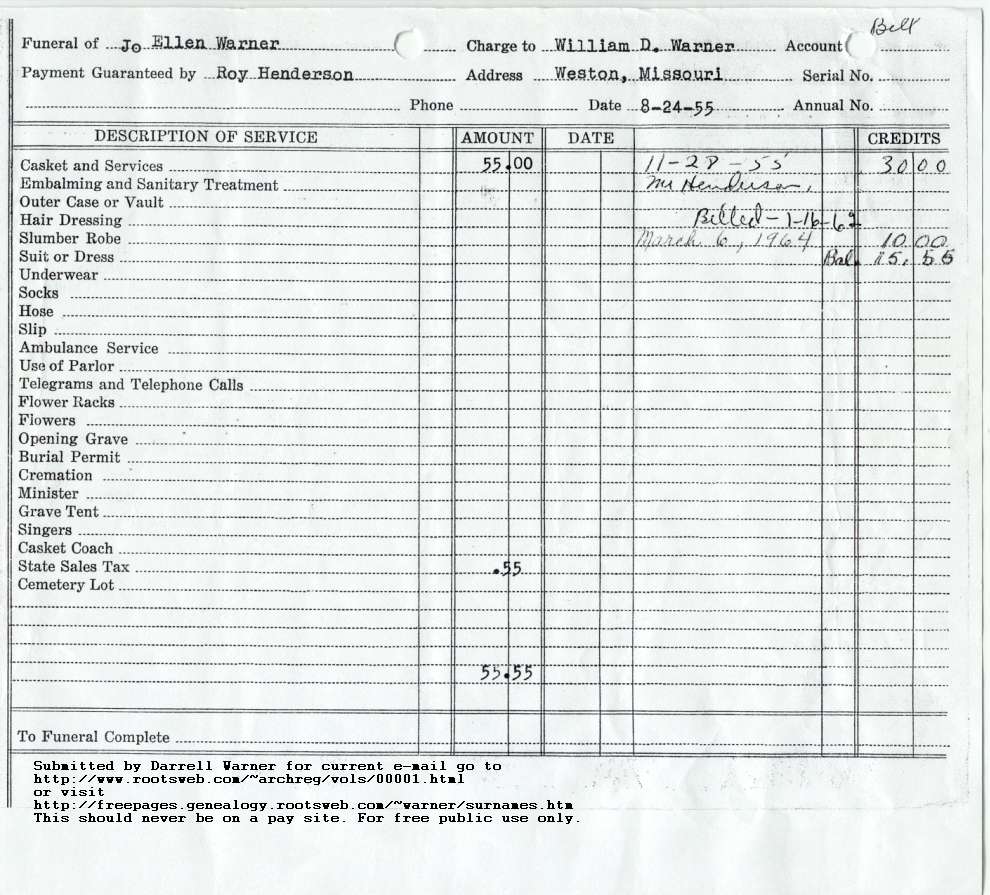 Belt
Funeral of Jo Ellen Warner Charge to William D. Warner Account
Payment Guaranteed by Roy Henderson Address Weston, Missouri Serial No.
Phone Date 8-24-55 Annual No.
DESCRIPTION OF SERVICE AMOUNT DATE CREDITS
Casket and Services 55.00 11-28-55 30 00
Embalming and Sanitary Treatment Mr Henderson,
Outer Case or Vault
Hair Dressing Billed-1-16-62
Slumber Robe March 6, 1964 10 00
Suit or Dress Bal. 15.55
Underwear
Socks
Hose
Slip
Ambulance Service
Use of Parlor
Telegrams and Telephone Calls
Flower Racks
Flowers
Opening Grave
Burial Permit
Cremation
Minister
Grave Tent
Singers
Casket Coach
State Sales Tax .55
Cemetery Lot
55.55
To Funeral Complete
Submitted by Darrell Warner for current e-mail go to
http://www.rootsweb.com/~archreg/vols/00001.html
or visit
http://freepages.genealogy.rootsweb.com/~warner/surnames.htm
This should never be on a pay site. For free public use only.